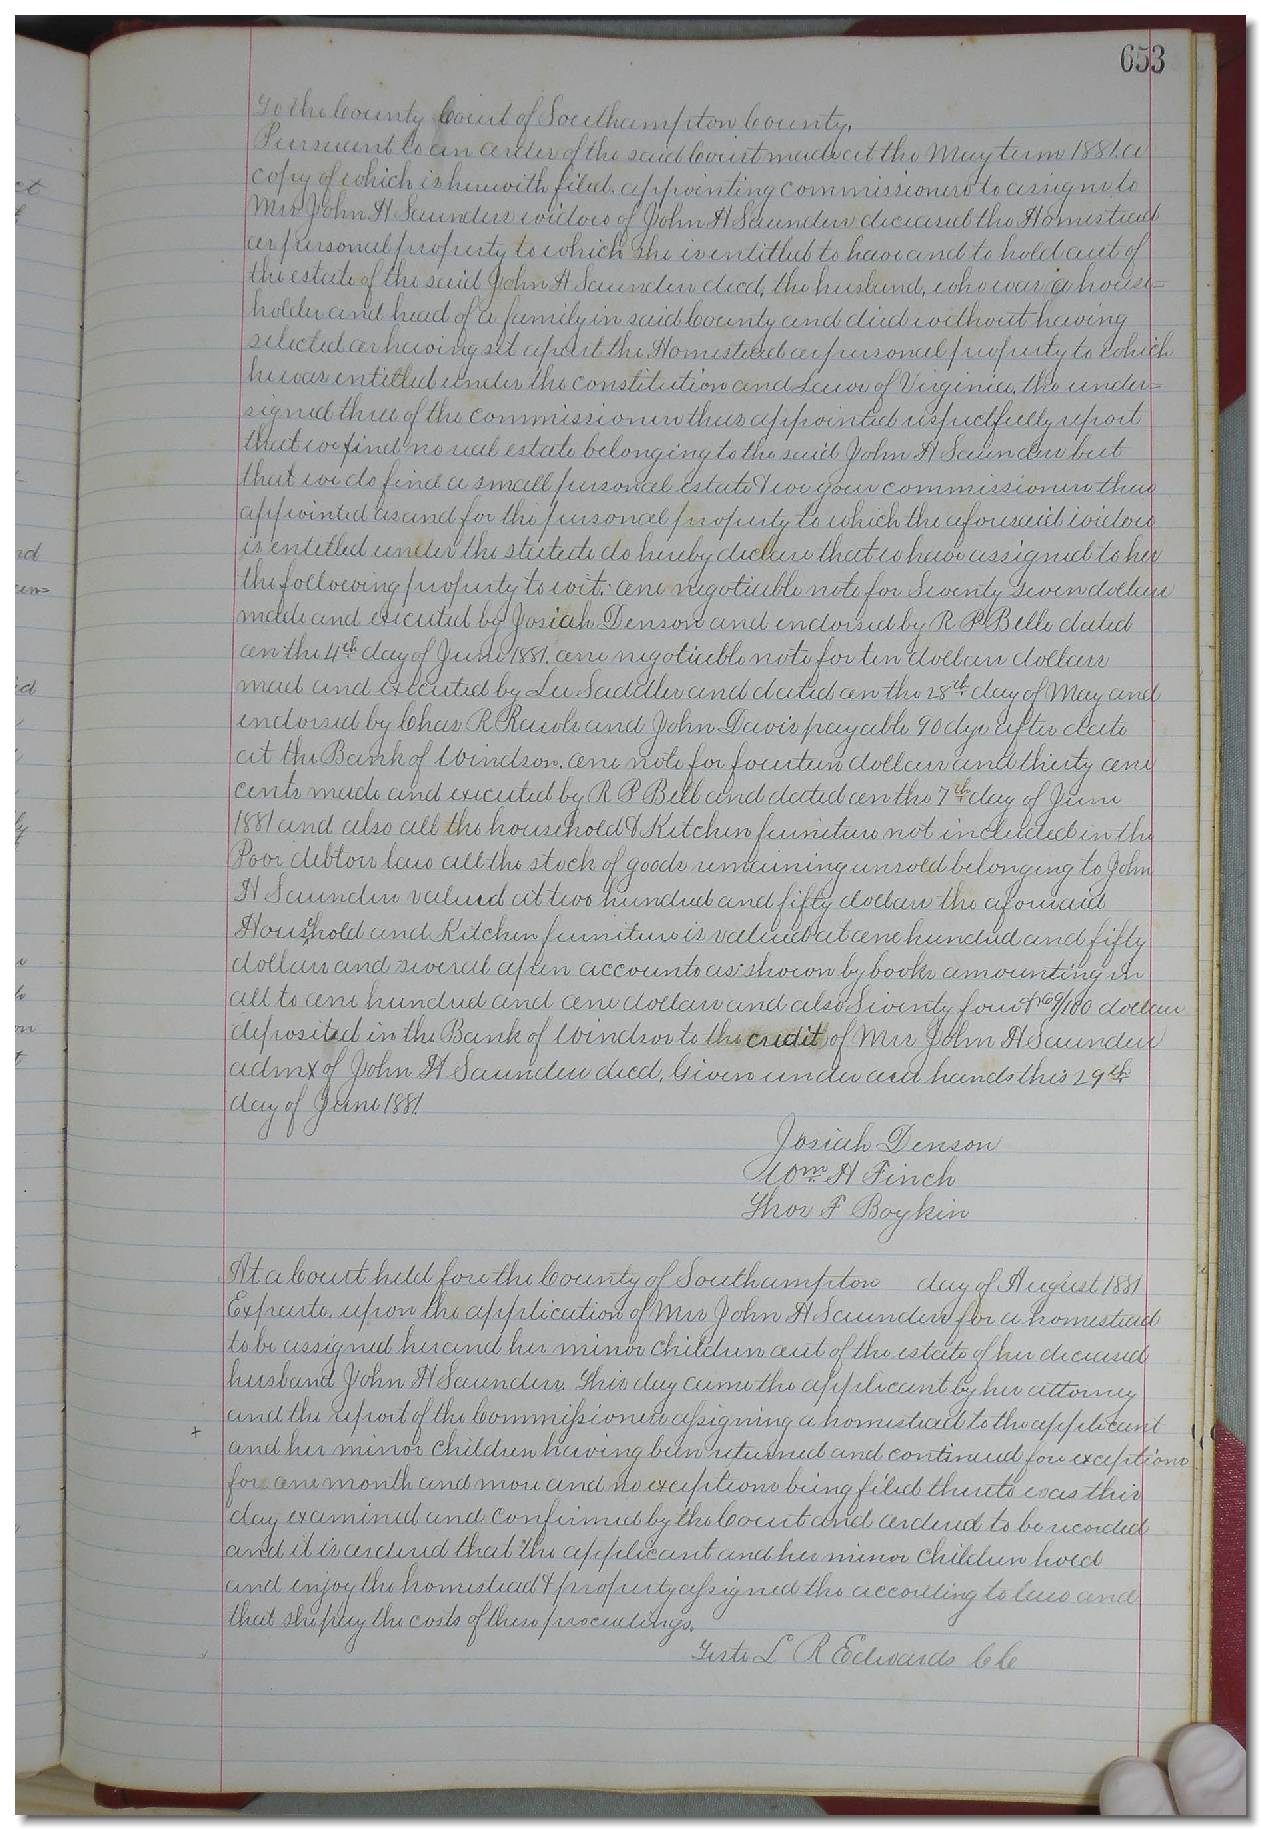 653
To the County Court of Southampton County,
Pursuant to an order of the said Court made at the May term 1881. a
copy of which is herewith filed, appointing commissioners to assign to
Mrs John H Saunders widow of John H Saunders deceased the Homestead
or personal property to which she is entitled to have and to hold out of
the estate of the said John H Saunders decd, the husband, who was a house=
holder and head of a family in said County and died without having
selected or having set apart the Homestead or personal property to which
he was entitled under the constitution and Laws of Virginia, the under=
signed three of the commissioners thus appointed respectfully report
that we find no real estate belonging to the said John H Saunders but
that we do find a small personal estate & we your commissioners thus
appointed as and for the personal property to which the aforesaid widow
is entitled under the statute do hereby declare that we have assigned to her
the following property to wit: one negotiable note for Seventy Seven dollars
made and executed by Josiah Denson and endorsed by R P Bell dated
on the 4th day of June 1881. one negotiable note for ten dollars dollars
mad and executed by Lee Saddler and dated on the 28th day of May and
endorsed by Chas R Rawls and John Davis payable 90 dys after date
at the Bank of Windsor. one note for fourteen dollars and thirty one
cents made and executed by R P Bell and dated on the 7th day of June
1881 and also all the household & Kitchen furniture not included in the
Poor debtors law all the stock of goods remaining unsold belonging to John
H Saunders valued at two hundred and fifty dollars the aforesaid
Household and Kitchen furniture is valued at one hundred and fifty
dollars and several open accounts as shown by books amounting in
all to one hundred and one dollars and also Seventy four & 69/100 dollars
deposited in the Bank of Windsor to the credit of Mrs John H Saunders
admx of John H Saunders decd. Given under our hands this 29th
day of June 1881
Josiah Denson
Wm H Finch
Thos F Boykin
At a Court held for the County of Southampton day of August 1881
Exparte. upon the application of Mrs John H Saunders for a homestead
to be assigned her and her minor children out of the estate of her deceased
husband John H Saunders. This day came the applicant by her attorney
and the report of the Commissioners assigning a homestead to the applicant
+ and her minor children having been returned and continued for exceptions
for one month and more and no exceptions being filed thereto was this
day examined and confirmed by the Court and ordered to be recorded
and it is ordered that the applicant and her minor children hold
and enjoy the homestead & property assigned tho according to law and
that she pay the costs of these proceedings.
Teste L R Edwards CC